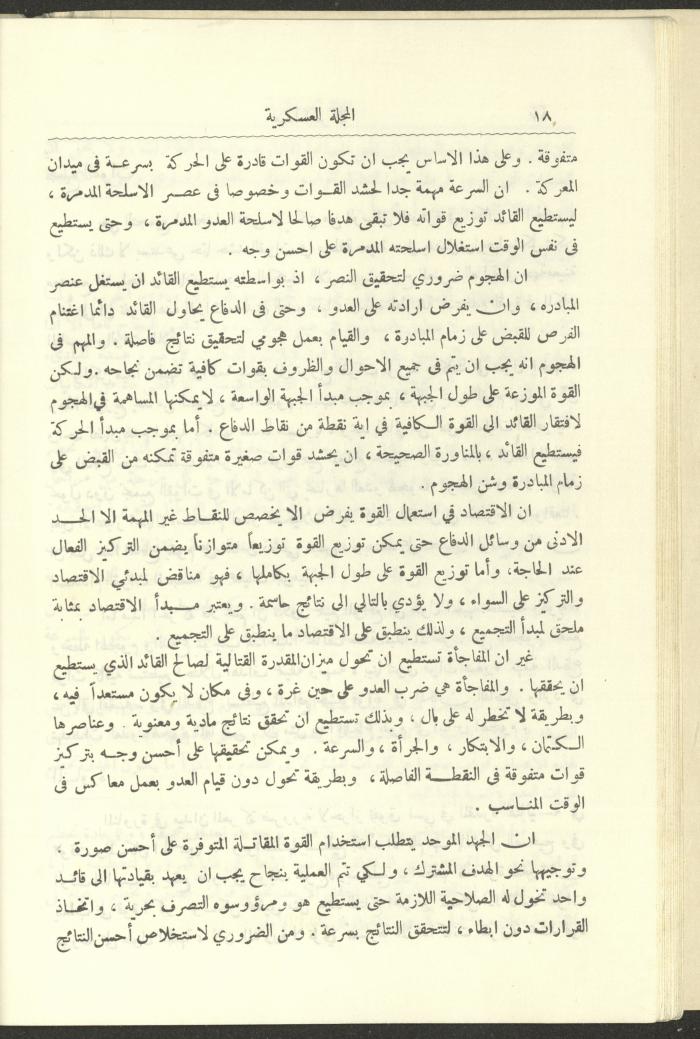 ١٨
المجلة العسكرية
متفوقة . وعلى هذا الاساس يجب ان تكون القوات قادرة على الحركة بسرعـة فى ميدان
المعركة . ان السرعة مهمة جدا لحشد القـوات وخصوصا فى عصر الاسلحة المدمرة ،
ليستطيع القائد توزيع قواته فلا تبقى هدفا صالحا لاسلحة العدو المدمرة ، وحتى يستطيع
فى نفس الوقت استغلال اسلحته المدمرة على احسن وجه .
ان الهجوم ضروري لتحقيق النصر ، اذ بواسطته يستطيع القائد ان يستغل عنصر
المبادره ، وان يفرض ارادته على العدو . وحتى فى الدفاع يحاول القائد دائما اغتنام
الفرص للقبض على زمام المبادرة ، والقيام بعمل هجومي لتحقيق نتائج فاصلة . والمهم فى
الهجوم انه يجب ان يتم فى جميع الاحوال والظروف بقوات كافية تضمن نجاحه .ولكن
القوة الموزعة على طول الجبهة ، بموجب مبدأ الجبهة الواسعة ، لايمكنها المساهمة في الهجوم
لافتقار القائد الى القوة الكافية في اية نقطة من نقاط الدفاع . أما بموجب مبدأ الحركة
فيستطيع القائد ، بالمناورة الصحيحة ، ان يحشد قوات صغيرة متفوقة تمكنه من القبض على
زمام المبادرة وشن الهجوم .
ان الاقتصاد في استعمال القوة يفرض الا يخصص للنقـاط غير المهمة الا الحــد
الادنى من وسائل الدفاع حتى يمكن توزيع القوة توزيعاً متوازناً يضمن التركيز الفعال
عند الحاجة، وأما توزيع القوة على طول الجبهة بكاملها ، فهو مناقض لمبدئي الاقتصاد
والتركيز على السواء ، ولا يؤدي بالتالي الى نتائج حاسمة . ويعتبر مــبدأ الاقتصاد بمثابة
ملحق لمبدأ التجميع ، ولذلك ينطبق على الاقتصاد ما ينطبق على التجميع .
غير ان المفاجأة تستطيع ان تحول ميزان المقدرة القتالية لصالح القائد الذي يستطيع
ان يحققها . والمفاجأة هي ضرب العدو على حين غرة ، وفى مكان لا يكون مستعداً فيه ،
وبطريقة لا تخطر له على بال ، وبذلك تستطيع ان تحقق نتائج مادية ومعنوية . وعناصرها
الكتمان ، والابتكار ، والجرأة ، والسرعة . ويمكن تحقيقها على أحسن وجـه بتركيز
قوات متفوقة فى النقطــة الفاصلة ، وبطريقة تحول دون قيام العدو بعمل معاكس فى
الوقت المنـاسب .
ان الجهد الموحد يتطلب استخدام القوة المقاتـلة المتوفرة على أحسن صورة ،
وتوجيهها نحو الهدف المشترك ، ولكي تتم العملية بنجاح يجب ان يعهد بقيادتها الى قائـد
واحد تخول له الصلاحية اللازمة حتى يستطيع هو ومرؤوسوه التصرف بحرية ، واتخـاذ
القرارات دون ابطاء ، لتتحقق النتائج بسرعة . ومن الضروري لاستخلاص أحسن النتائج